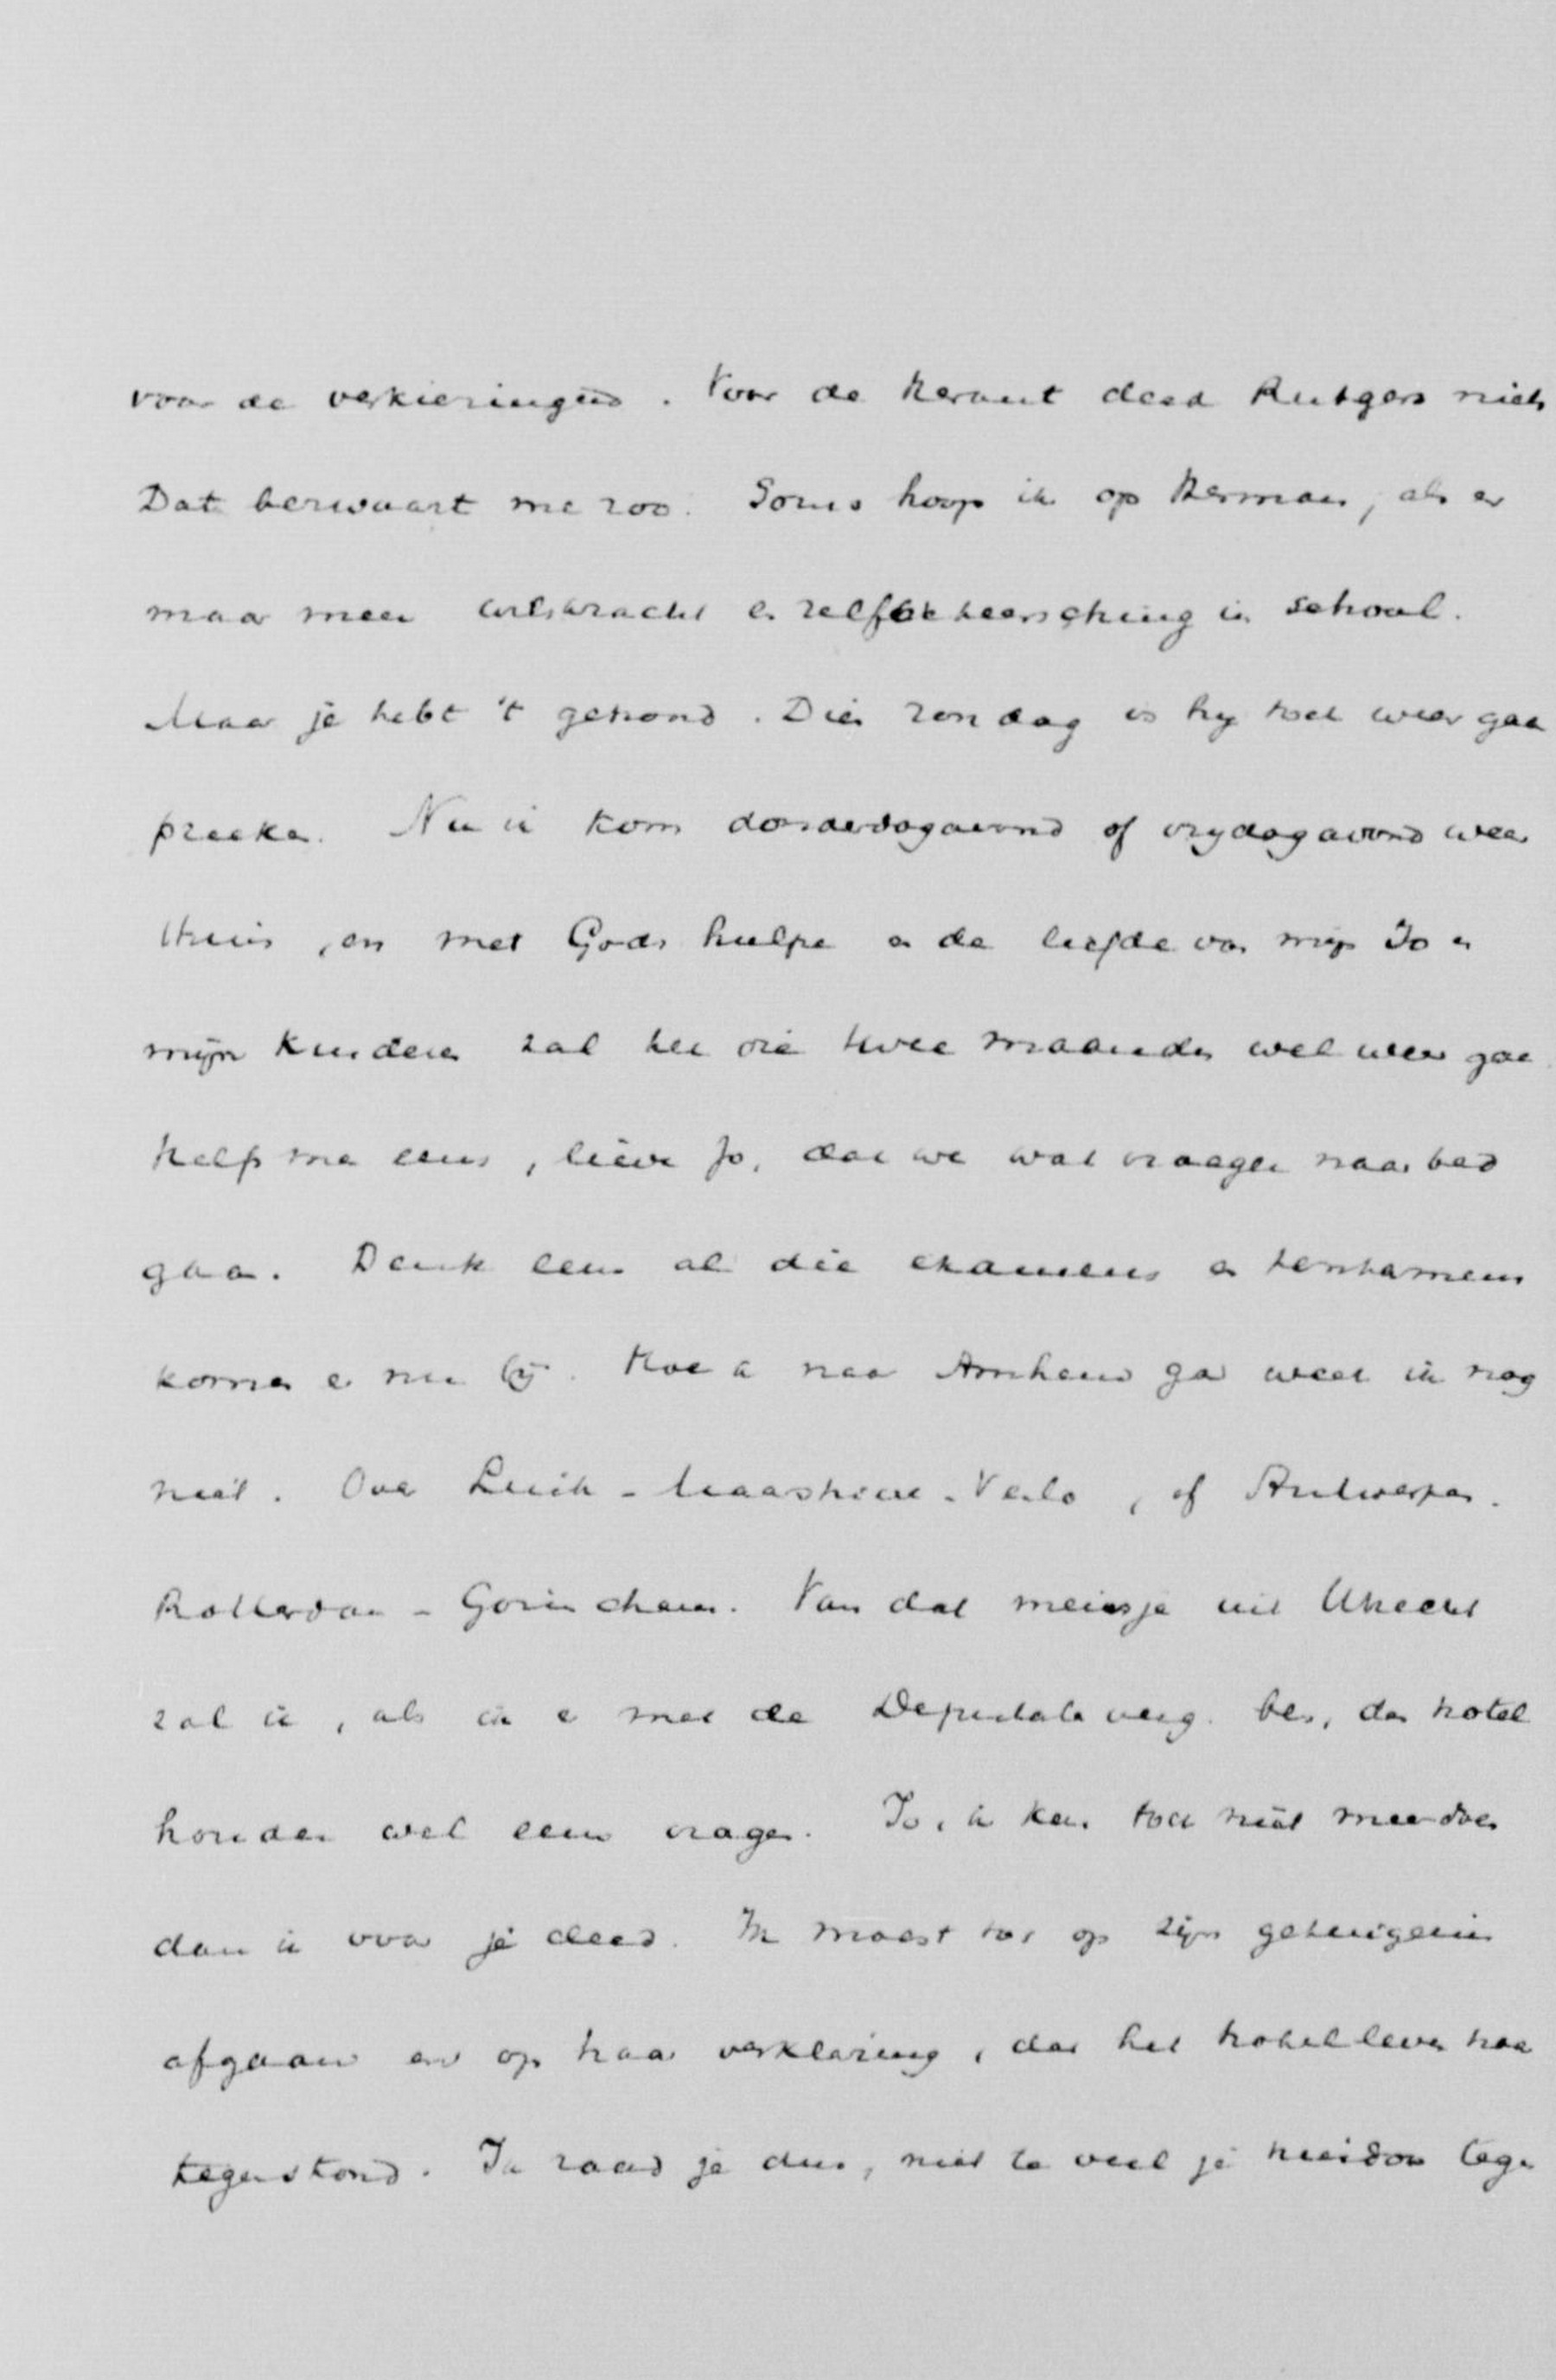 voor de verkiezingen. Voor de Heraut deed Rutgers niets
Dat bezwaart me zoo. Soms hoop ik op Herman, als er
maar meer wilskracht en zelfbeheersching in school.
Maar je hebt 't gehoord. Dien zondag is hij toch weer gaan
preeken. Nu ik kom donderdagavond of vrydagavond weer
thuis, en met Gods hulpe en de liefde van mijn Jo en
mijn kinderen zal het die twee maanden wel weer gaan.
Help me eens, lieve Jo, dat we wat vroeger naar bed
gaan. Denk eens al die examens en tentamens
komen er nu bij. Hoe ik naar Arnhem ga weet ik nog
niet. Over Luik - Maastricht - Venlo, of Antwerpen.
Rotterdam - Gorinchem. Van dat meisje uit Utrecht
zal ik, als ik er met de Deputatenverg. ben, den hotel
houder wel eens vragen. Jo, ik kan toch niet meer doen
dan ik voor je deed. Ik moest toch op zijn getuigenis
afgaan en op haar verklaring, dat het hotelleven haar
tegenstond. Ik raad je dus, niet te veel je tegen